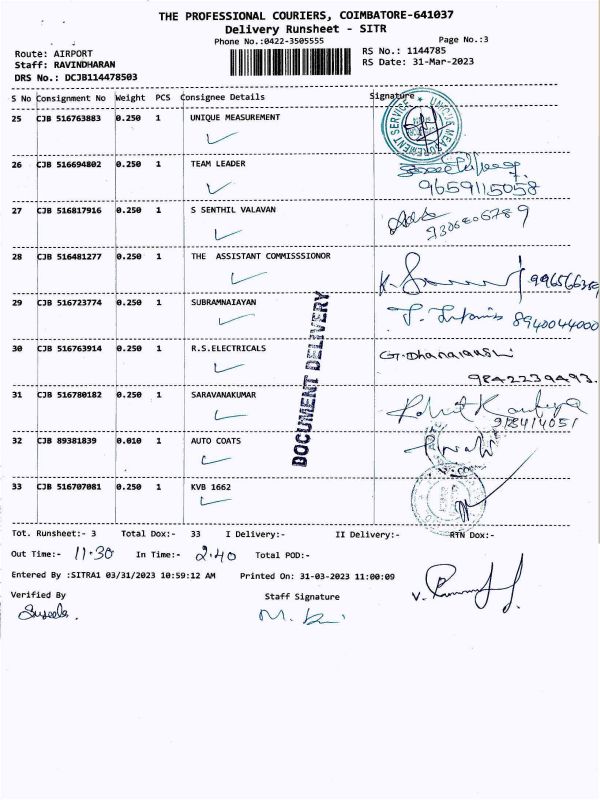 THE PROFESSIONAL COURIERS, COIMBATORE-641037
Delivery Runsheet - SITR
Phone No.:0422-3505555
Page No.:3
Route: AIRPORT
RS No.: 1144785
Staff: RAVINDHARAN
RS Date: 31-Mar-2023
DRS No.: DCJB114478503
S No Consignment No Weight PCS Consignee Details Signature
25 CJB 516763883 0.250 1 UNIQUE MEASUREMENT
UNIQUE MEASUREMENT SERVICE
26 CJB 516694802 0.250 1 TEAM LEADER
9659115058
27 CJB 516817916 0.250 1 S SENTHIL VALAVAN
9306806789
28 CJB 516481277 0.250 1 THE ASSISTANT COMMISSSIONOR
29 CJB 516723774 0.250 1 SUBRAMNAIAYAN
8940044000
DOCUMENT DELIVERY
30 CJB 516763914 0.250 1 R.S.ELECTRICALS
9842239493.
31 CJB 516780182 0.250 1 SARAVANAKUMAR
32 CJB 89381839 0.010 1 AUTO COATS
33 CJB 516707081 0.250 1 KVB 1662
Tot. Runsheet:- 3 Total Dox:- 33 I Delivery:- II Delivery:- RTN Dox:-
Out Time:- 11.30 In Time:- 2.40 Total POD:-
Entered By :SITRA1 03/31/2023 10:59:12 AM Printed On: 31-03-2023 11:00:09
Verified By Staff Signature